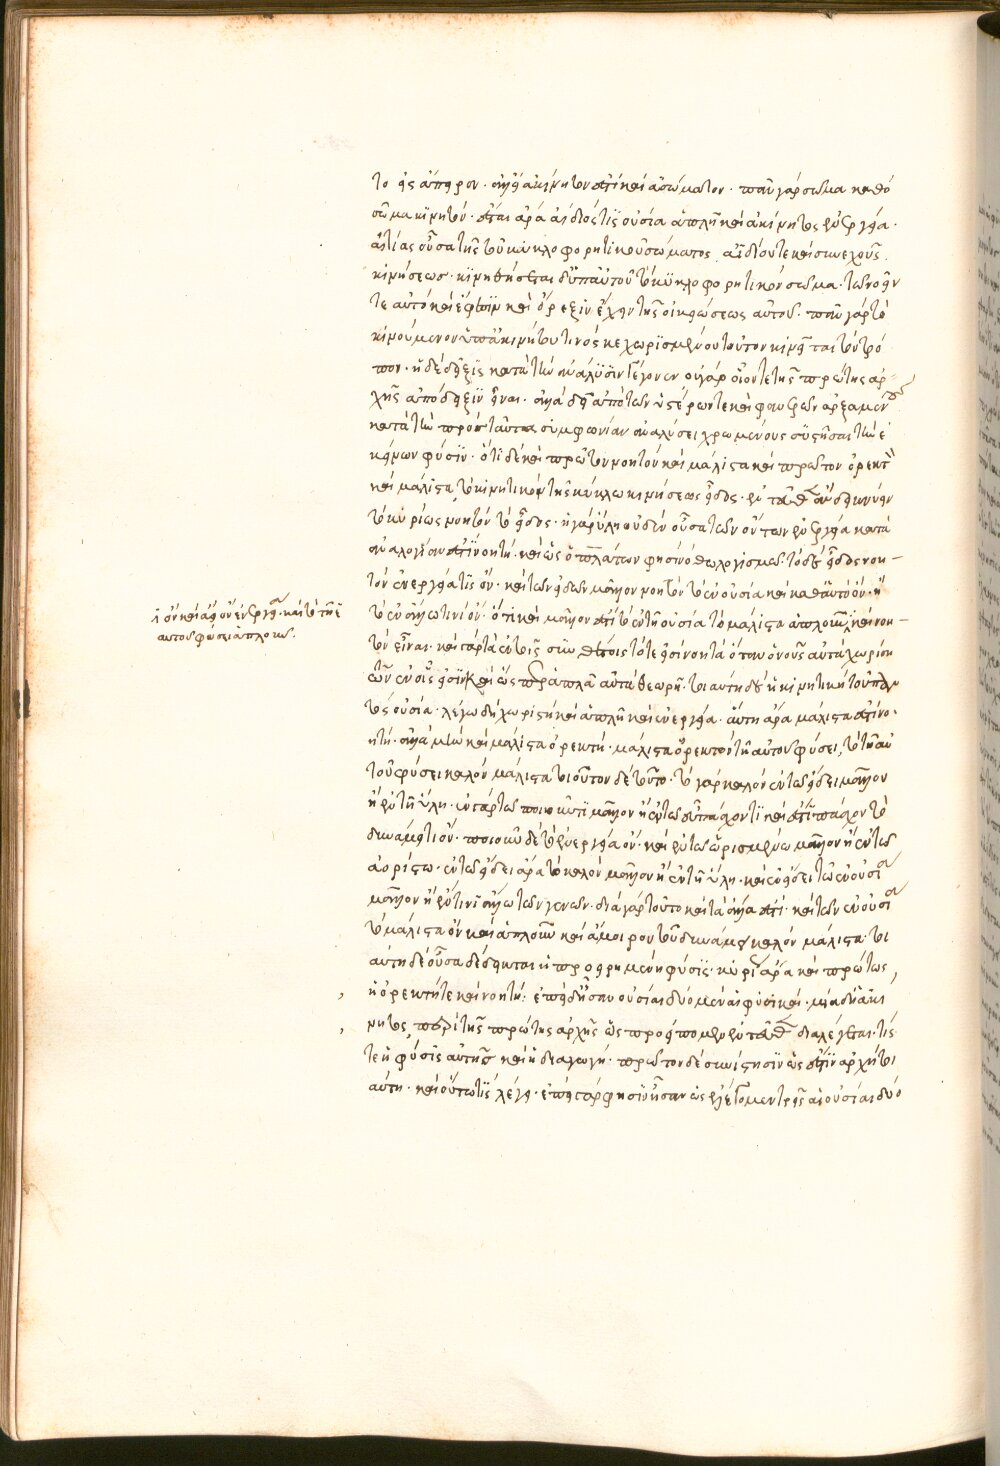 το εἰς ἄπειρον. ἀλλ' ἀκίνητόν ἐστι καὶ ἀσώματον. πᾶν γὰρ σῶμα καθὸ
σῶμα κινητόν. ἔσται ἄρα ἀίδιός τις οὐσία ἁπλῆ καὶ ἀκίνητος ἐνεργείᾳ.
αἰτίας οὖσα τῆς τοῦ κυκλοφορητικοῦ σώματος ἀϊδίου τε καὶ συνεχοῦς
κινήσεως. κινηθήσεται δ' ὑπ' αὐτοῦ τὸ κυκλοφορητικὸν σῶμα. τῷ νοεῖν
τε αὐτὸ καὶ ἔφεσιν καὶ ὄρεξιν ἔχειν τῆς ὁμοιώσεως αὐτοῦ. πᾶν γὰρ τὸ
κινούμενον ὑπὸ ἀκινήτου τινὸς κεχωρισμένου τοῦτον κινεῖται τὸν τρό
πον. ἡ δὲ δεῖξις κατὰ τὴν ἀνάλυσιν γέγονεν. οὐ γὰρ οἷόν τε τῆς πρώτης ἀρ
χῆς ἀπόδειξιν εἶναι. ἀλλὰ δεῖ ἀπὸ τῶν ὑστέρων τε καὶ φανερῶν ἀρξαμέν
κατὰ τὴν πρὸς ταῦτα συμφωνίαν ἀναλύσει χρωμένους συστῆσαι τὴν ἐ
κείνων φύσιν. ὅτι δὲ καὶ πρῶτον νοητὸν καὶ μάλιστα καὶ πρῶτον ὀρεκτ
καὶ μάλιστα τὸ κινητικὸν τῆς κύκλῳ κινήσεως εἶδος. ἐν δεικνύειν
τὸ κυρίως νοητὸν τὸ εἶδος. ἡ γὰρ ὕλη οὐδὲν οὖσα τῶν ὄντων ἐνεργείᾳ κατὰ
ἀναλογίαν ἐστὶ νοητή. καὶ ὡς ὁ πλάτων φησὶ νόθῳ λογισμῷ. τὸ δ' εἶδος νοη
τὸν ἐνεργείᾳ τι ὄν. καὶ τῶν εἰδῶν μᾶλλον νοητὸν τὸ ἐν οὐσίᾳ καὶ καθ' αὑτὸ ὄν. ἢ
τὸ ἐν ἄλλῳ τινὶ ὄν. ὅτι καὶ μᾶλλόν ἐστι τὸ ἐν τῇ οὐσίᾳ τὸ μάλιστα ἁπλοῦν καὶ νοη
τὸν εἶναι. καὶ γὰρ τὰ ἐν τοῖς συνθέτοις τότε εἰσὶ νοητὰ ὅταν ὁ νοῦς αὐτὰ χωρίσῃ
τῶν ἐν οἷς εἰσὶν καὶ ὡς ἁπλᾶ αὐτὰ θεωρῇ. τοιαύτη δ' ἡ κινητικὴ τοῦ παν
τὸς οὐσία. λέγω δὴ χωριστὴ καὶ ἁπλῆ καὶ ἐνεργείᾳ. αὕτη ἄρα μάλιστά ἐστι νο
ητή. ἀλλὰ μὴν καὶ μάλιστα ὀρεκτή. μάλιστα ὀρεκτὸν τὸ τῇ αὐτοῦ φύσει, τὸ τῇ αὐ
τοῦ φύσει καλόν μάλιστα τοιοῦτον δὲ τοῦτο. τὸ γὰρ καλὸν ἐν τῷ εἴδει μᾶλλον
ἢ ἐν τῇ ὕλῃ. ἐν γὰρ τῷ ποιοῦντι μᾶλλον ἢ ἐν τῷ ὑπάρχοντι καὶ ἔστι πάσχον τὸ
δυνάμει τι ὄν. ποιοῦν δὲ τὸ ἐνεργείᾳ ὄν. καὶ ἐν τῷ ὡρισμένῳ μᾶλλον ἢ ἐν τῷ
ἀορίστῳ. ἐν τῷ εἴδει ἄρα τὸ καλὸν μᾶλλον ἢ ἐν τῇ ὕλῃ. καὶ ἐν εἴδει τῷ ἐν οὐσίᾳ
μᾶλλον ἢ ἔν τινι ἄλλῳ τῶν γενῶν. διὰ γὰρ τοῦτο καὶ τὰ ἄλλα ἐστί. καὶ τῶν ἐν οὐσίᾳ
τὸ μάλιστα ὂν καὶ ἁπλοῦν καὶ ἄμοιρον τοῦ δυνάμει καλὸν μάλιστα. τοι
αύτη δὲ οὖσα δέδεικται ἡ προειρημένη φύσις. κυρία ἄρα καὶ πρώτως
ἡ ὀρεκτή τε καὶ νοητή: ἐπεὶ δ' ἦσαν οὐσίαι δύο μὲν αἱ φυσικαί. μία δ' ἡ ἀκί
νητος, περὶ τῆς πρώτης ἀρχῆς ὡς προείπομεν ἐν διαλέγεται. τίς
τε ἡ φύσις αὐτῆς καὶ ἡ διαγωγή. πρῶτον δὲ συνίστησιν ὡς ἔστιν ἀρχή τοι
αύτη. καὶ οὕτω τις λέγει. ἐπεὶ γάρ φησιν ἦσαν ὡς ἐλέγομεν τρεῖς αἱ οὐσίαι δύο
ὂν καὶ ἀεὶ ὂν ἐνεργείᾳ. καὶ τὸ τῇ ἑ
αυτοῦ φύσει ἁπλοῦν.